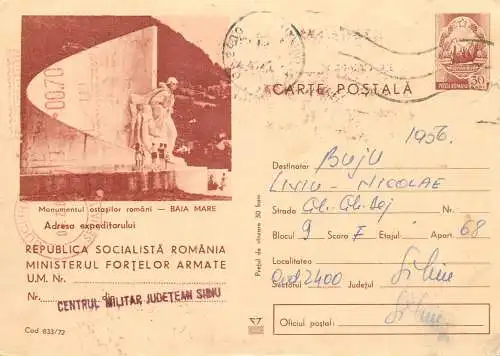 CARTE POSTALĂ
50
POSTA ROMÂNĂ
1956.
Destinatar BUJU
LIVIU - NICOLAE
Strada Gh. Gh. Dej Nr.
Blocul 9 Scara E Etajul Apart 68
Localitatea
Sectorul 2400 Județul Sibiu
Sibiu
Oficiul poștal:
Prețul de vînzare 50 bani
Monumentul ostașilor români — BAIA MARE
Adresa expeditorului
REPUBLICA SOCIALISTĂ ROMÂNIA
MINISTERUL FORȚELOR ARMATE
U.M. Nr.
Nr. din
CENTRUL MILITAR JUDEȚEAN SIBIU
Cod 633/72